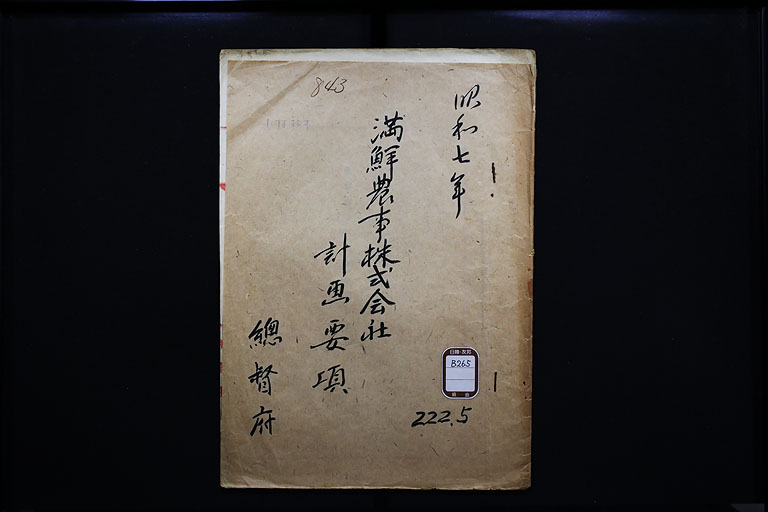 昭和七年
満鮮農事株式会社
計画要項
總督府
843
日韓・友邦
B265
222.5